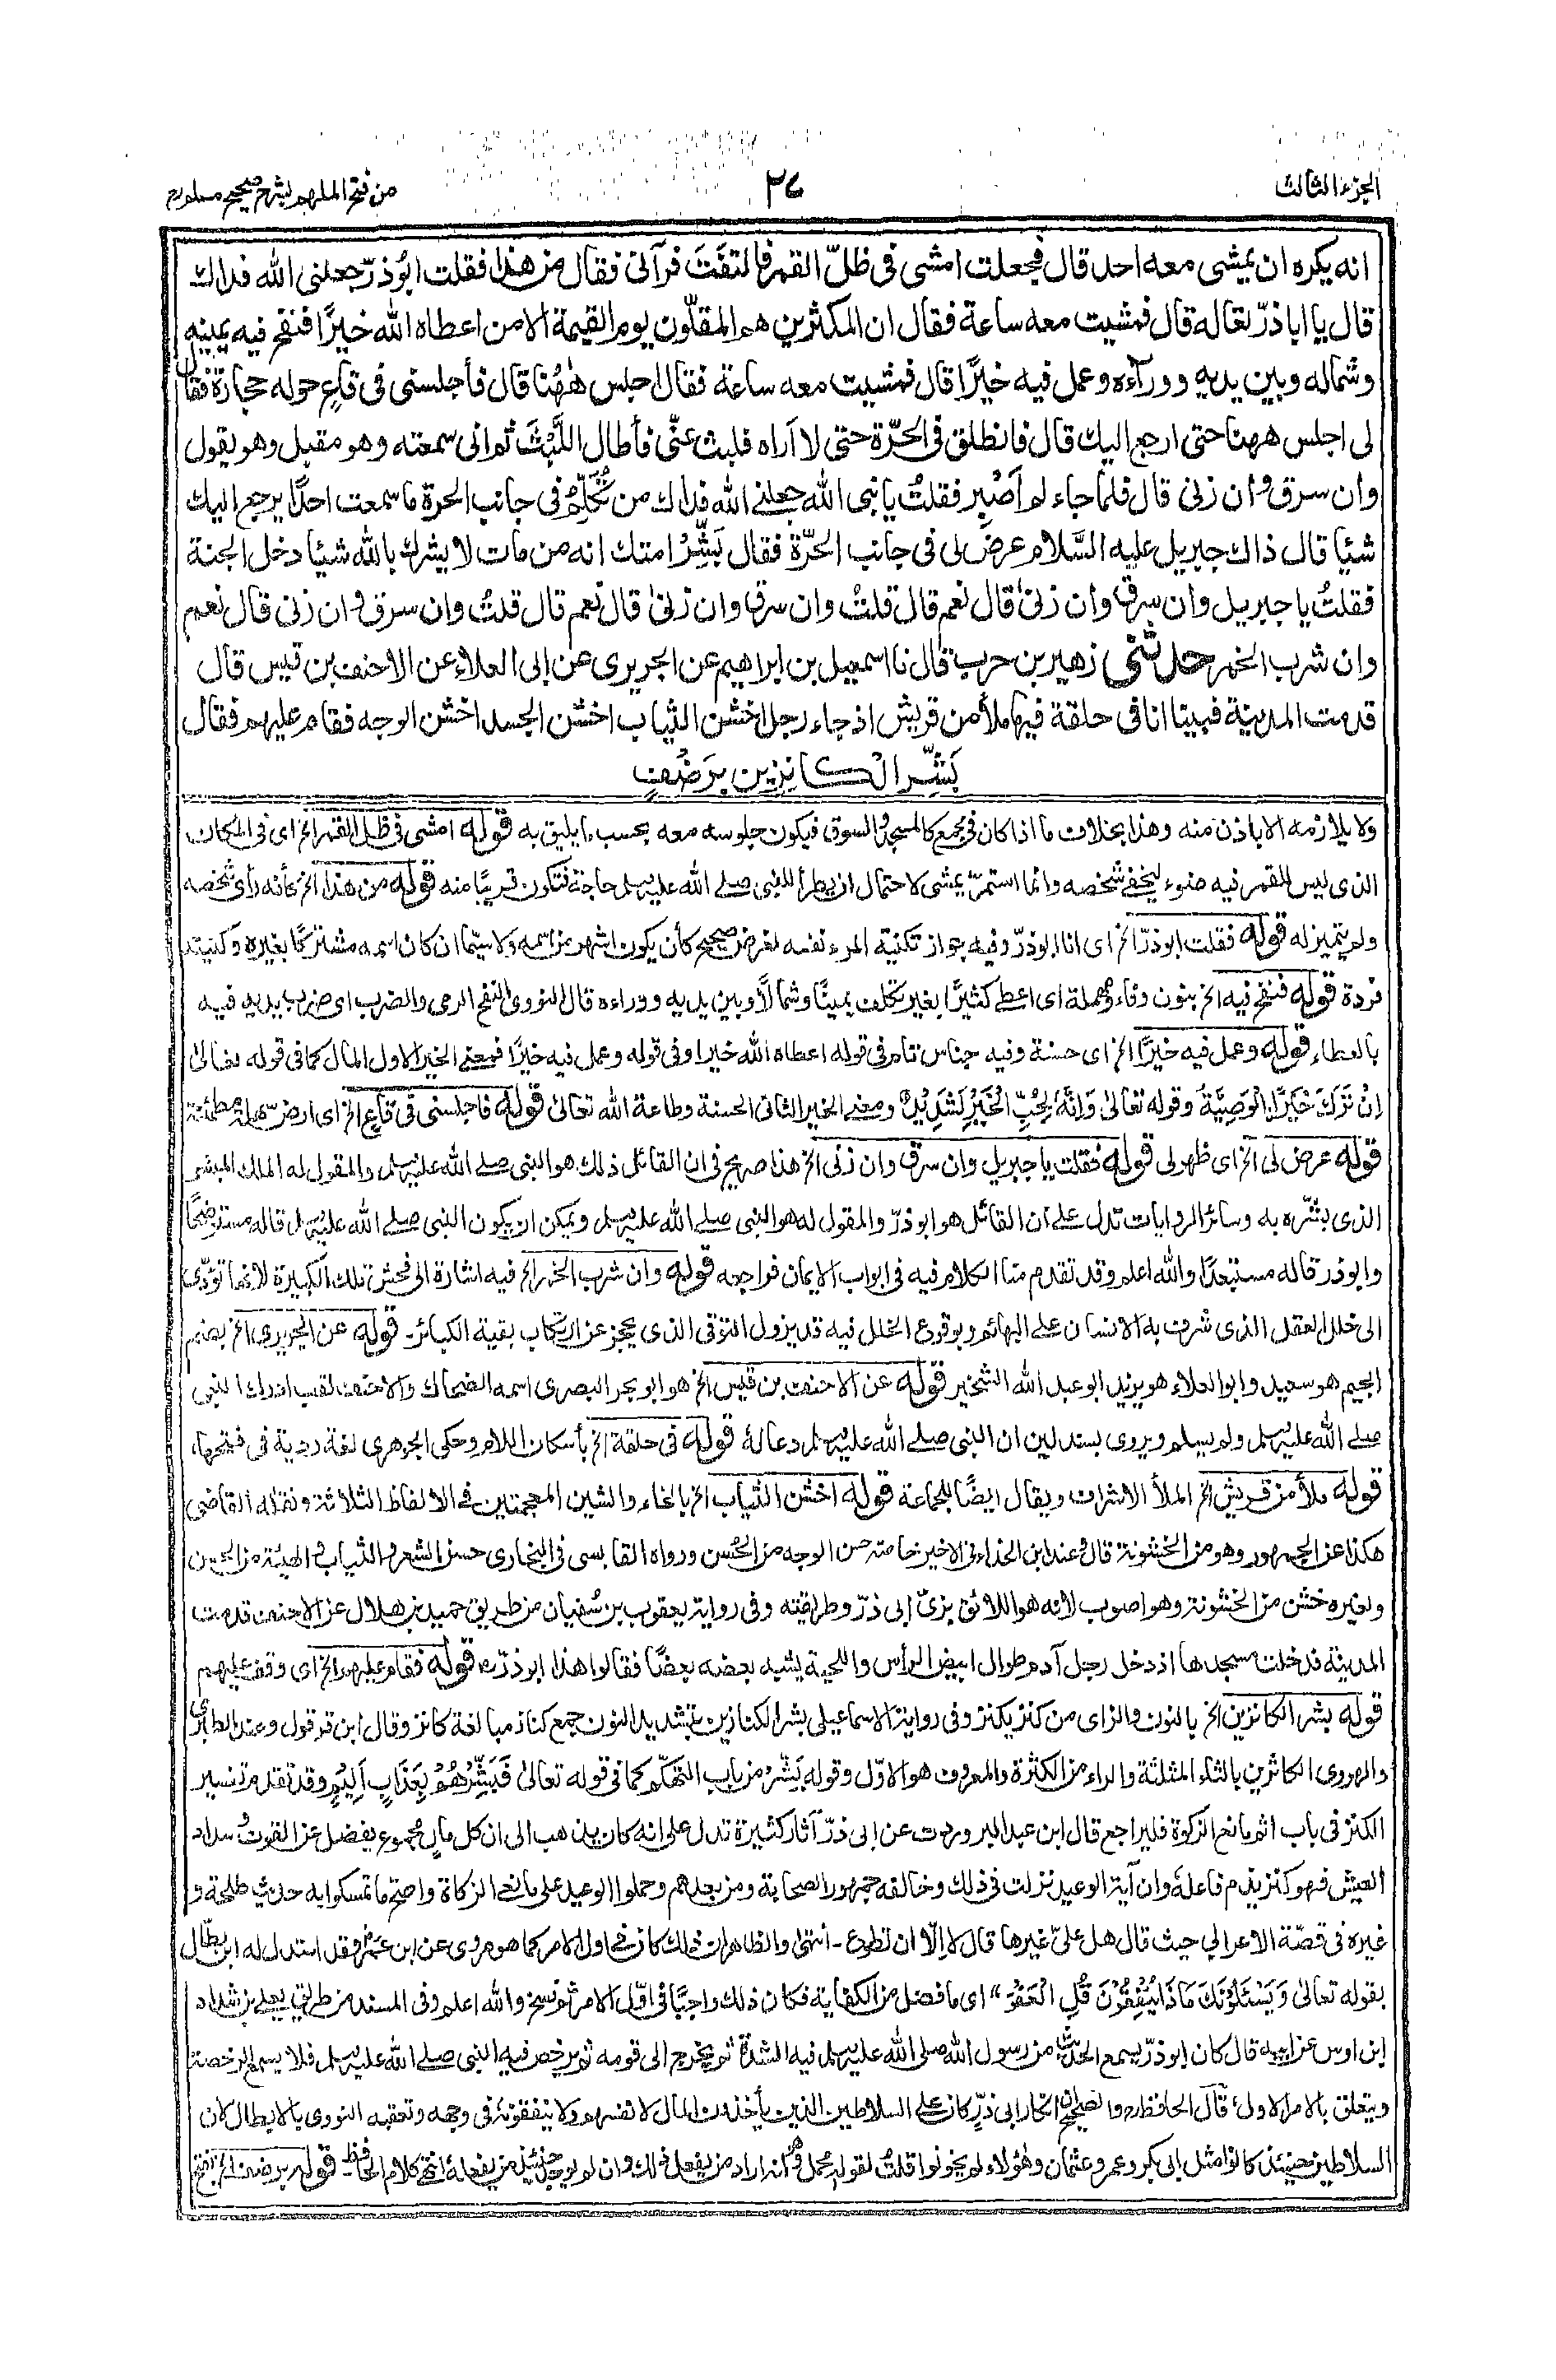 الجزء الثالث
٣٤
من فتح الملهم بشرح صحيح مسلم
انه يكره ان يمشى معه احد قال فجعلت امشى فى ظلّ القمر فالتفَتَ فرآنى فقال من هذا فقلت ابُو ذرّ جعلنى الله فداك
قال يا ابا ذرّ تعاله قال فمشيت معه ساعة فقال ان المكثرين هم المقلّون يوم القيمة الا من اعطاه الله خيرًا فنفح فيه يمينه
وشماله وبين يديه وورآءه وعمل فيه خيرًا قال فمشيت معه ساعة فقال اجلس هٰهُنا قال فأجلسنى فى قاعٍ حوله حجارة فقال
لى اجلس ههنا حتى ارجع اليك قال فانطلق فى الحرّة حتى لا آراه فلبث عنّى فأطال اللَّبْثَ ثم انى سمعته وهو مقبل وهو يقول
وان سرق وان زنى قال فلما جاء لم اَصْبِر فقلتُ يا نبى الله جعلنے الله فداك من تُكَلِّمُ فى جانب الحرة ما سمعت احدًا يرجع اليك
شيئا قال ذاك جبريل عليه السَّلام عرض لى فى جانب الحرّة فقال بَشِّرْ امتك انه من مات لا يشرك بالله شيئا دخل الجنة
فقلتُ يا جبريل وان سرق وان زنىٰ قال نعم قال قلتُ وان سرق وان زنىٰ قال نعم قال قلتُ وان سرق وان زنى قال نعم
وان شرب الخمر حدثنى زهير بن حرب قال نا اسمعيل بن ابراهيم عن الجريرى عن ابى العلاء عن الاحنف بن قيس قال
قدمت المدينة فبينا انا فى حلقة فيها ملأ من قريش اذ جاء رجل اخشن الثياب اخشن الجسد اخشن الوجه فقام عليهم فقال
بَشِّر الكانزين برَضْفٍ
ولا يلازمه الا باذن منه وهذا بخلاف ما اذا كان فى مجمع كالمسجد والسوق فيكون جلوسه معه بحسب ما يليق به قوله امشى فى ظل القمر الخ اى فى المكان
الذى ليس للقمر فيه ضوء ليخفے شخصه وانما استمرّ يمشى لاحتمال ان يطرأ للنبى صلے الله عليه وسلم حاجة فتكون قريبًا منه قوله من هذا الخ كأنه رأى شخصه
ولم يتميز له قوله فقلت ابو ذرّ الخ اى انا ابو ذرّ وفيه جواز تكنية المرء نفسه لغرض صحيح كأن يكون اشهر من اسمه ولا سيّما ان كان اسمه مشتركًا بغيره وكنيته
فردة قوله فنفح فيه الخ بنون وفاء ومهملة اى اعطے كثيرًا بغير تكلف يمينًا وشمالًا وبين يديه ووراءه قال النووى النفح الرمى والضرب اى ضرب يديه فيه
بالعطاء قوله وعمل فيه خيرًا الخ اى حسنة وفيه جناس تام فى قوله اعطاه الله خيرا وفى قوله وعمل فيه خيرًا فمعنے الخير الاول المال كما فى قوله تعالىٰ
اِنْ تَرَكَ خَيْرًا الْوَصِيَّةُ وقوله تعالىٰ وَاِنَّهٗ لِحُبِّ الْخَيْرِ لَشَدِيْدٌ ومعنے الخير الثانى الحسنة وطاعة الله تعالىٰ قوله فاجلسنى فى قاع الخ اى ارض سهلة مطمئنة
قوله عرض لى الخ اى ظهر لى قوله فقلت يا جبريل وان سرق وان زنى الخ هذا صريح فى ان القائل ذلك هو النبى صلے الله عليه وسلم والمقول له الملك المبشر
الذى بشّره به وسائر الروايات تدل علے ان القائل هو ابو ذرّ والمقول له هو النبى صلے الله عليه وسلم ويمكن ان يكون النبى صلے الله عليه وسلم قاله مستوضحًا
وابو ذر قاله مستبعدًا والله اعلم وقد تقدم منا الكلام فيه فى ابواب الايمان فراجعه قوله وان شرب الخمر الخ فيه اشارة الى فحش تلك الكبيرة لانها تؤدّى
الى خلل العقل الذى شرف به الانسان علے البهائم وبوقوع الخلل فيه قد يزول التوقى الذى يحجز عن ارتكاب بقية الكبائر۔ قوله عن الجريرى الخ بضم
الجيم هو سعيد وابو العلاء هو يزيد ابو عبد الله الشخير قوله عن الاحنف بن قيس الخ هو ابو بحر البصرى اسمه الضحاك والاحنف لقب ادرك النبى
صلے الله عليه وسلم ولم يسلم ويروى بسند لين ان النبى صلے الله عليه وسلم دعا له قوله فى حلقة الخ بأسكان اللام وحكى الجوهرى لغة ردية فى فتحها،
قوله ملأ من قريش الخ الملأ الاشراف ويقال ايضًا للجماعة قوله اخشن الثياب الخ بالخاء والشين المعجمتين فے الالفاظ الثلاثة ونقله القاضى
هكذا عن الجمهور وهو من الخشونة قال وعند ابن الحذاء فى الاخير خاصة حسن الوجه من الحُسن ورواه القابسى فى البخارى حسن الشعر والثياب والهيئة من الحسن
ولغيره خشن من الخشونة وهو اصوب لانه هو اللائق بزىّ ابى ذرّ وطريقته وفى رواية يعقوب بن سُفيان من طريق حميد بن هلال عن الاحنف قدمت
المدينة فدخلت مسجدها اذ دخل رجل آدم طوال ابيض الرأس واللحية يشبه بعضه بعضًا فقالوا هذا ابو ذرّ قوله فقام عليهم الخ اى وقف عليهم
قوله بشر الكانزين الخ بالنون والزاى من كنز يكنز وفى رواية الاسماعيلى بشر الكنازين بتشديد النون جمع كناز مبالغة كانز وقال ابن قرقول وعند الطبرى
والهروى الكاثرين بالثاء المثلثة والراء من الكثرة والمعروف هو الاوّل وقوله بَشّرْ من باب التهكّم كما فى قوله تعالىٰ فَبَشِّرْهُمْ بِعَذَابٍ اَلِيْمٍ وقد تقدم تفسير
الكنز فى باب اثم مانع الزكوة فليراجع قال ابن عبد البر وردت عن ابى ذرّ آثار كثيرة تدل على انه كان يذهب الى ان كل مالٍ مجموع يفضل عن القوت وسداد
العيش فهو كنز يذم فاعلهٗ وان آية الوعيد نزلت فى ذلك وخالفه جمهور الصحابة ومن بعدهم وحملوا الوعيد على مانعے الزكاة واصح ما تمسكوا به حديث طلحة و
غيره فى قصّة الاعرابي حيث قال هل علىّ غيرها قال لا الّا ان تطوع۔ انتهىٰ والظاهر ان ذلك كان فے اول الامر كما هو مروى عن ابن عمر وقد استدل له ابن بطّال
بقوله تعالىٰ وَيَسْئَلُوْنَكَ مَاذَا يُنْفِقُوْنَ قُلِ الْعَفْوَ " اى ما فضل من الكفاية فكان ذلك واجبًا فى اوّل الامر ثم نسخ والله اعلم وفى المسند من طريق يعلے بن شداد
ابن اوس عن ابيه قال كان ابو ذرّ يسمع الحديث من رسول الله صلى الله عليه وسلم فيه الشدة ثم يخرج الى قومه ثم يرخص فيه النبى صلے الله عليه وسلم فلا يسمع الرخصة
ويتعلق بالامر الاول، قال الحافظ والصحيح ان انكار ابى ذرّ كان على السلاطين الذين يأخذون المال لانفسهم ولا ينفقونه فى وجهه وتعقبه النووى بالابطال لان
السلاطين حينئذ كانوا مثل ابى بكر وعمر وعثمان وهٰؤلاء لم يخونوا قلتُ لقوله محمل وهو انه اراد من يفعل ذلك وان لم يوجد حينئذ من يفعله انتهٰى كلام الحافظ۔ قوله برضف الخ بفتح